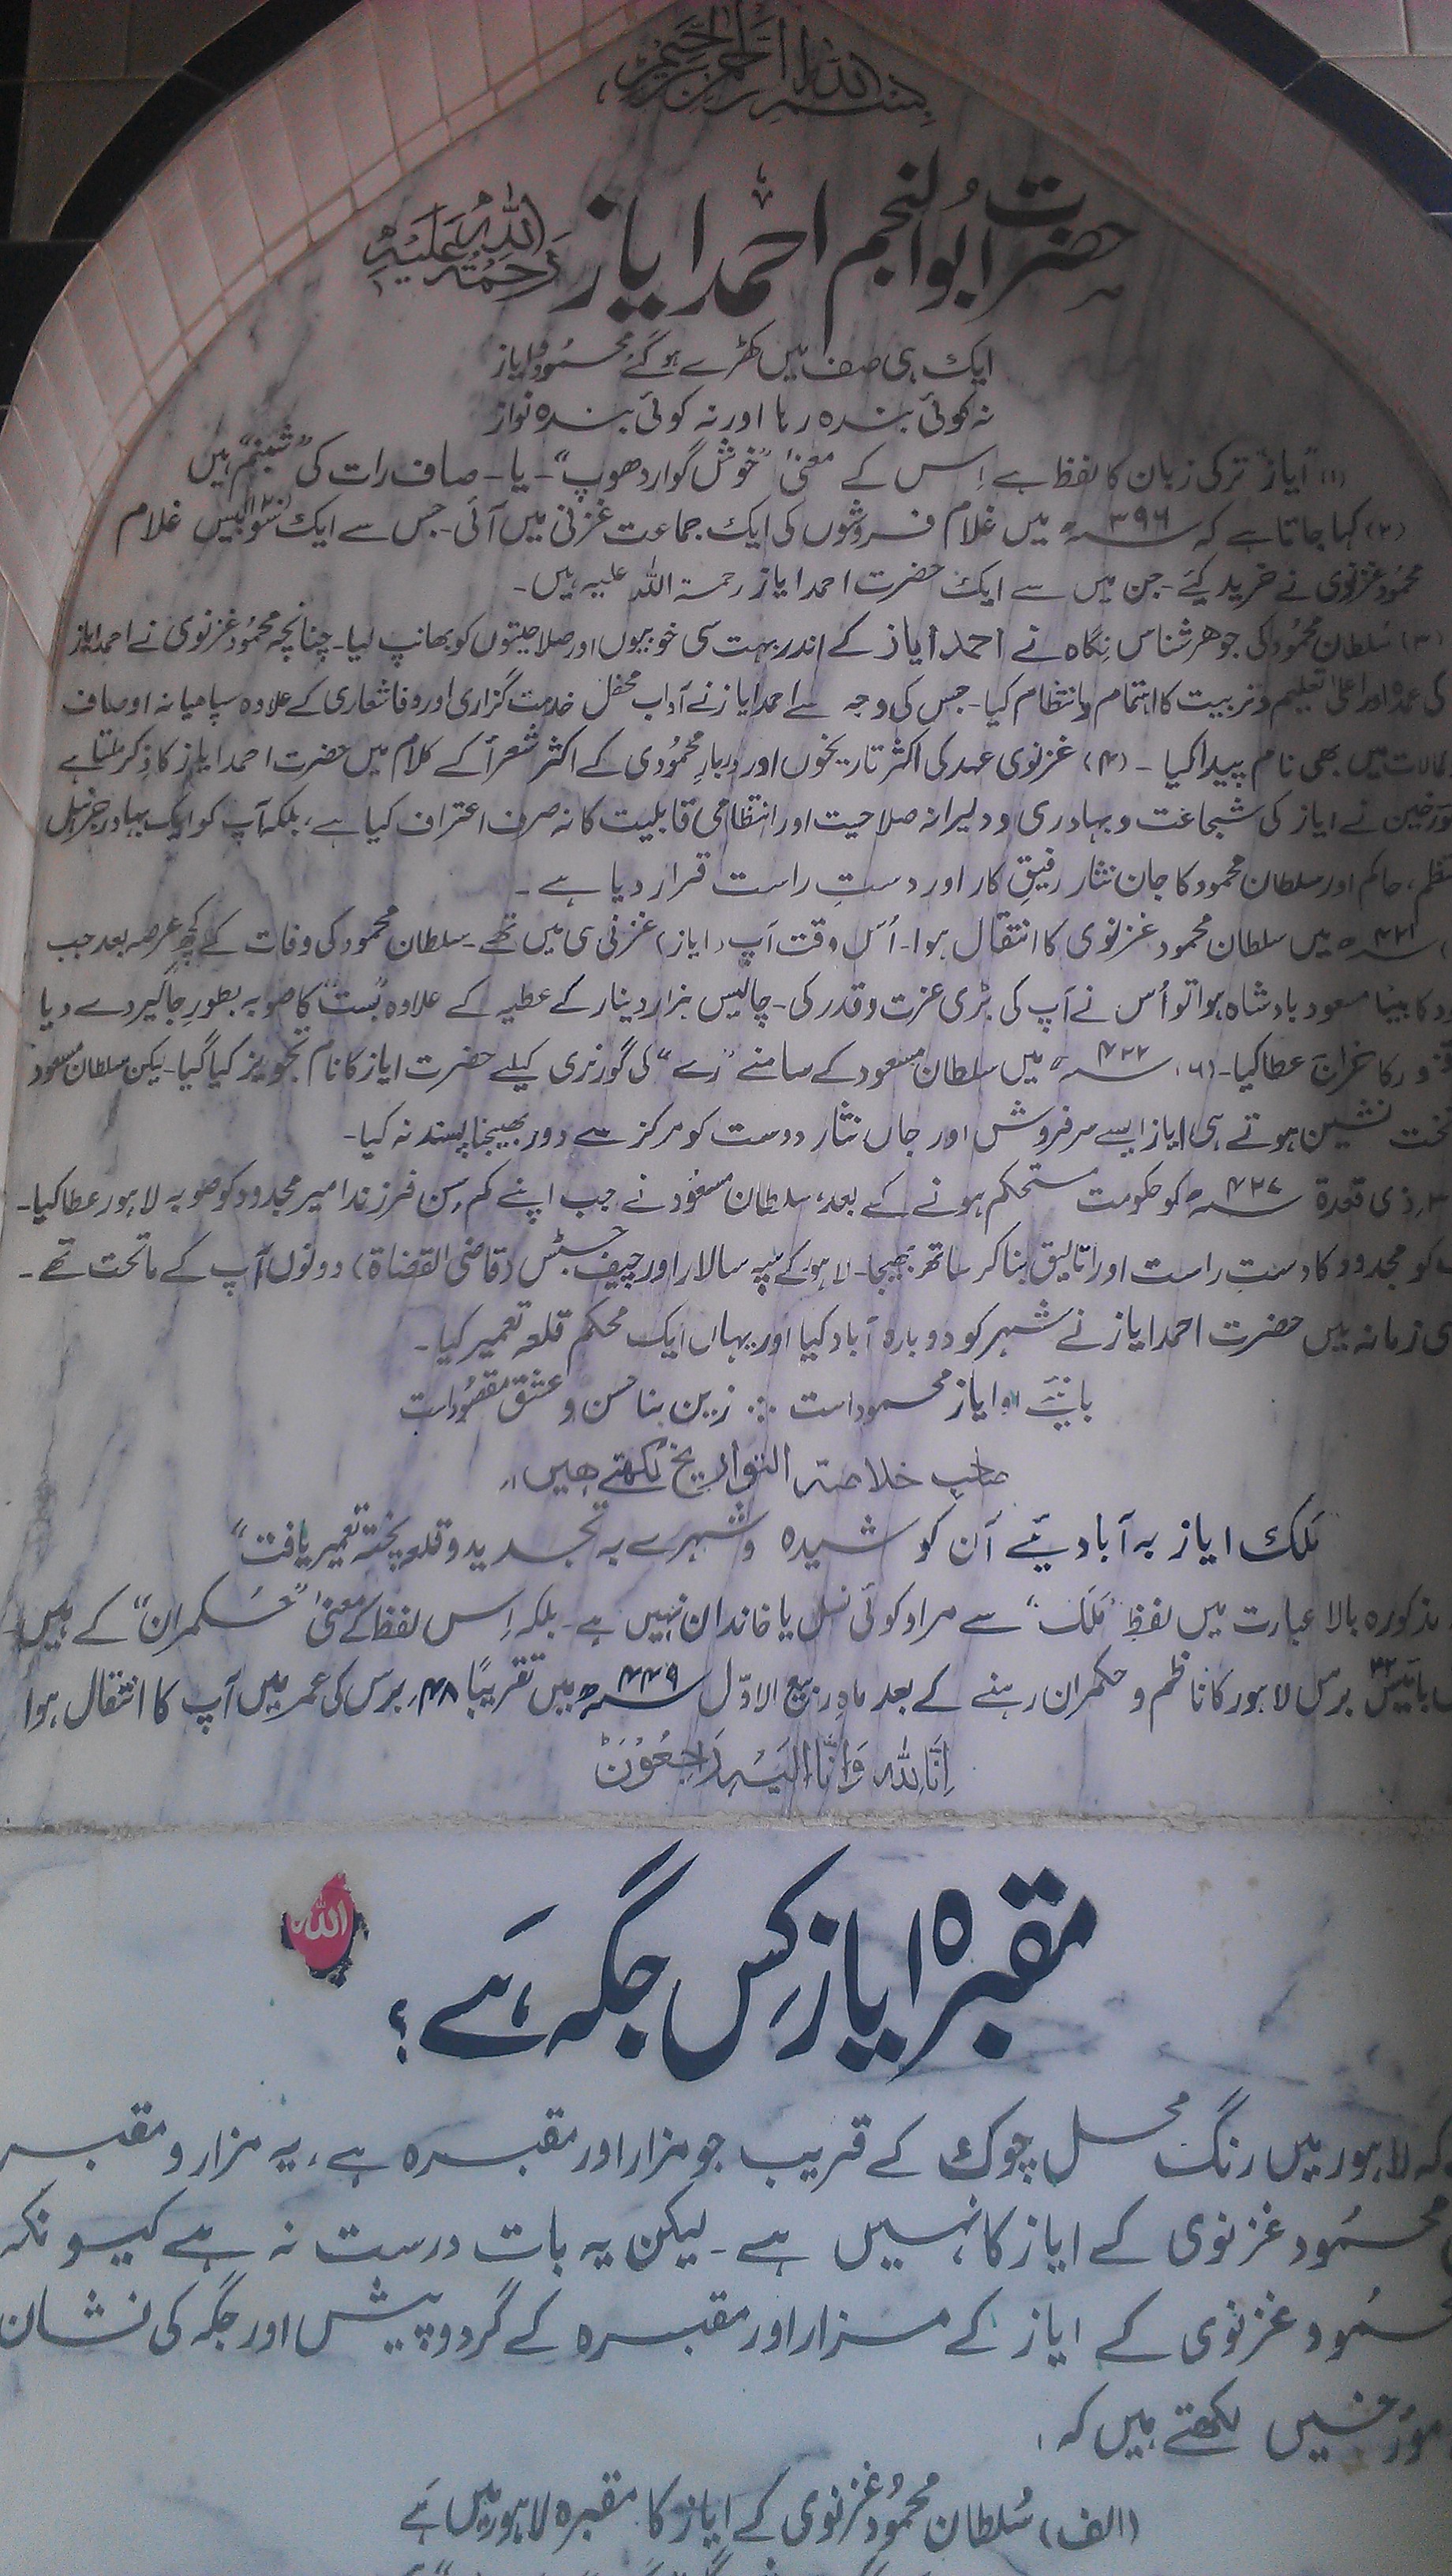 بسم اللہ الرحمن الرحیم
حضرت ابوالنجم احمد ایاز رحمۃ اللہ علیہ
ایک ہی صف میں کھڑے ہو گئے محمود و ایاز
نہ کوئی بندہ رہا اور نہ کوئی بندہ نواز
(۱) "ایاز" ترکی زبان کا لفظ ہے اِس کے معنیٰ "خوش گوار دھوپ" - یا - صاف رات کی "شبنم" ہیں
(۲) کہا جاتا ہے کہ ۳۹۶ھ میں غلام فروشوں کی ایک جماعت غزنی میں آئی - جس سے ایک سو غلام
محمود غزنوی نے خرید کیے - جن میں سے ایک حضرت احمد ایاز رحمۃ اللہ علیہ ہیں -
(۳) سُلطان محمُود کی جوھر شناس نِگاہ نے احمد ایاز کے اندر بہت سی خوبیوں اور صلاحیتوں کو بھانپ لیا - چنانچہ محمُود غزنوی نے احمد ایاز
کی عمدہ اور اعلیٰ تعلیم و تربیت کا اہتمام و انتظام کیا - جس کی وجہ سے احمد ایاز نے آداب محفل خدمت گزاری اور وفا شعاری کے علاوہ سپاہیانہ اوصاف
کمالات میں بھی نام پیدا کیا - (۴) غزنوی عہد کی اکثر تاریخوں اور دربارِ محمُودی کے اکثر شُعرأ کے کلام میں حضرت احمد ایاز کا ذِکر ملتا ہے
مورخین نے ایاز کی شجاعت و بہادری و دلیرانہ صلاحیت اور انتظامی قابلیت کا نہ صرف اعتراف کیا ہے، بلکہ آپ کو ایک بہادر جرنیل
منتظم، حاکم اور سلطان محمود کا جان نثار رفیقِ کار اور دستِ راست قرار دیا ہے -
۴۲۱ھ میں سلطان محمود غزنوی کا انتقال ہوا - اُس وقت آپ (ایاز) غزنی ہی میں تھے - سلطان محمود کی وفات کے کچھ عرصہ بعد جب
کا بیٹا مسعود بادشاہ ہوا تو اُس نے آپ کی بڑی عزت و قدر کی - چالیس ہزار دینار کے عطیہ کے علاوہ "بست" کا صوبہ بطورِ جاگیر دے دیا
کا خراج عطا کیا - (۶) ۴۲۲ھ میں سلطان مسعود کے سامنے "رے" کی گورنری کیلئے حضرت ایاز کا نام تجویز کیا گیا - لیکن سلطان مسعود
تخت نشین ہوتے ہی ایاز ایسے سرفروش اور جاں نثار دوست کو مرکز سے دور بھیجنا پسند نہ کیا -
ذی قعدۃ ۴۲۷ھ کو حکومت مستحکم ہونے کے بعد، سلطان مسعُود نے جب اپنے کم سِن فرزند امیر مجدود کو صوبہ لاہور عطا کیا -
کو مجدود کا دستِ راست اور اتالیق بنا کر ساتھ بھیجا - لاہور کے سپہ سالار اور چیف جسٹس (قاضی القضاۃ) دونوں آپ کے ماتحت تھے -
زمانہ میں حضرت احمد ایاز نے شہر کو دوبارہ آباد کیا اور یہاں ایک محکم قلعہ تعمیر کیا -
ایاز محمود است ∴ زین بنا حسن و عشق مقصُود است
صاحب خلاصتہ التواریخ لکھتے ھیں :
مَلک ایاز بہ آبادیئے آن کوشیدہ و شہرے بہ تجدید و قلعہ پختہ تعمیر یافت"
مذکورہ بالا عبارت میں لفظِ "مَلَک" سے مراد کوئی نسل یا خاندان نہیں ہے - بلکہ اِس لفظ کے معنیٰ "حُکمران" کے ہیں
بائیس ۲۲ برس لاہور کا ناظم و حکمران رہنے کے بعد ماہ ربیع الاوّل ۴۴۹ھ میں تقریبًا ۴۸ برس کی عمر میں آپ کا انتقال ہوا
اِنَّا لِلّٰہِ وَاِنَّا اِلَیْہِ رَاجِعُوْنَ
اللہ
مقبرہ ایاز کِس جگہ ہَے؟
کہ لاہور میں رنگ محل چوک کے قریب جو مزار اور مقبرہ ہے، یہ مزار و مقبر
محمُود غزنوی کے ایاز کا نہیں ہے - لیکن یہ بات درست نہ ہے کیونکہ
محمُود غزنوی کے ایاز کے مزار اور مقبرہ کے گردوپیش اور جگہ کی نشان
مورخین لکھتے ہیں کہ :
(الف) سُلطان محمُود غزنوی کے ایاز کا مقبرہ لاہور میں ہَے